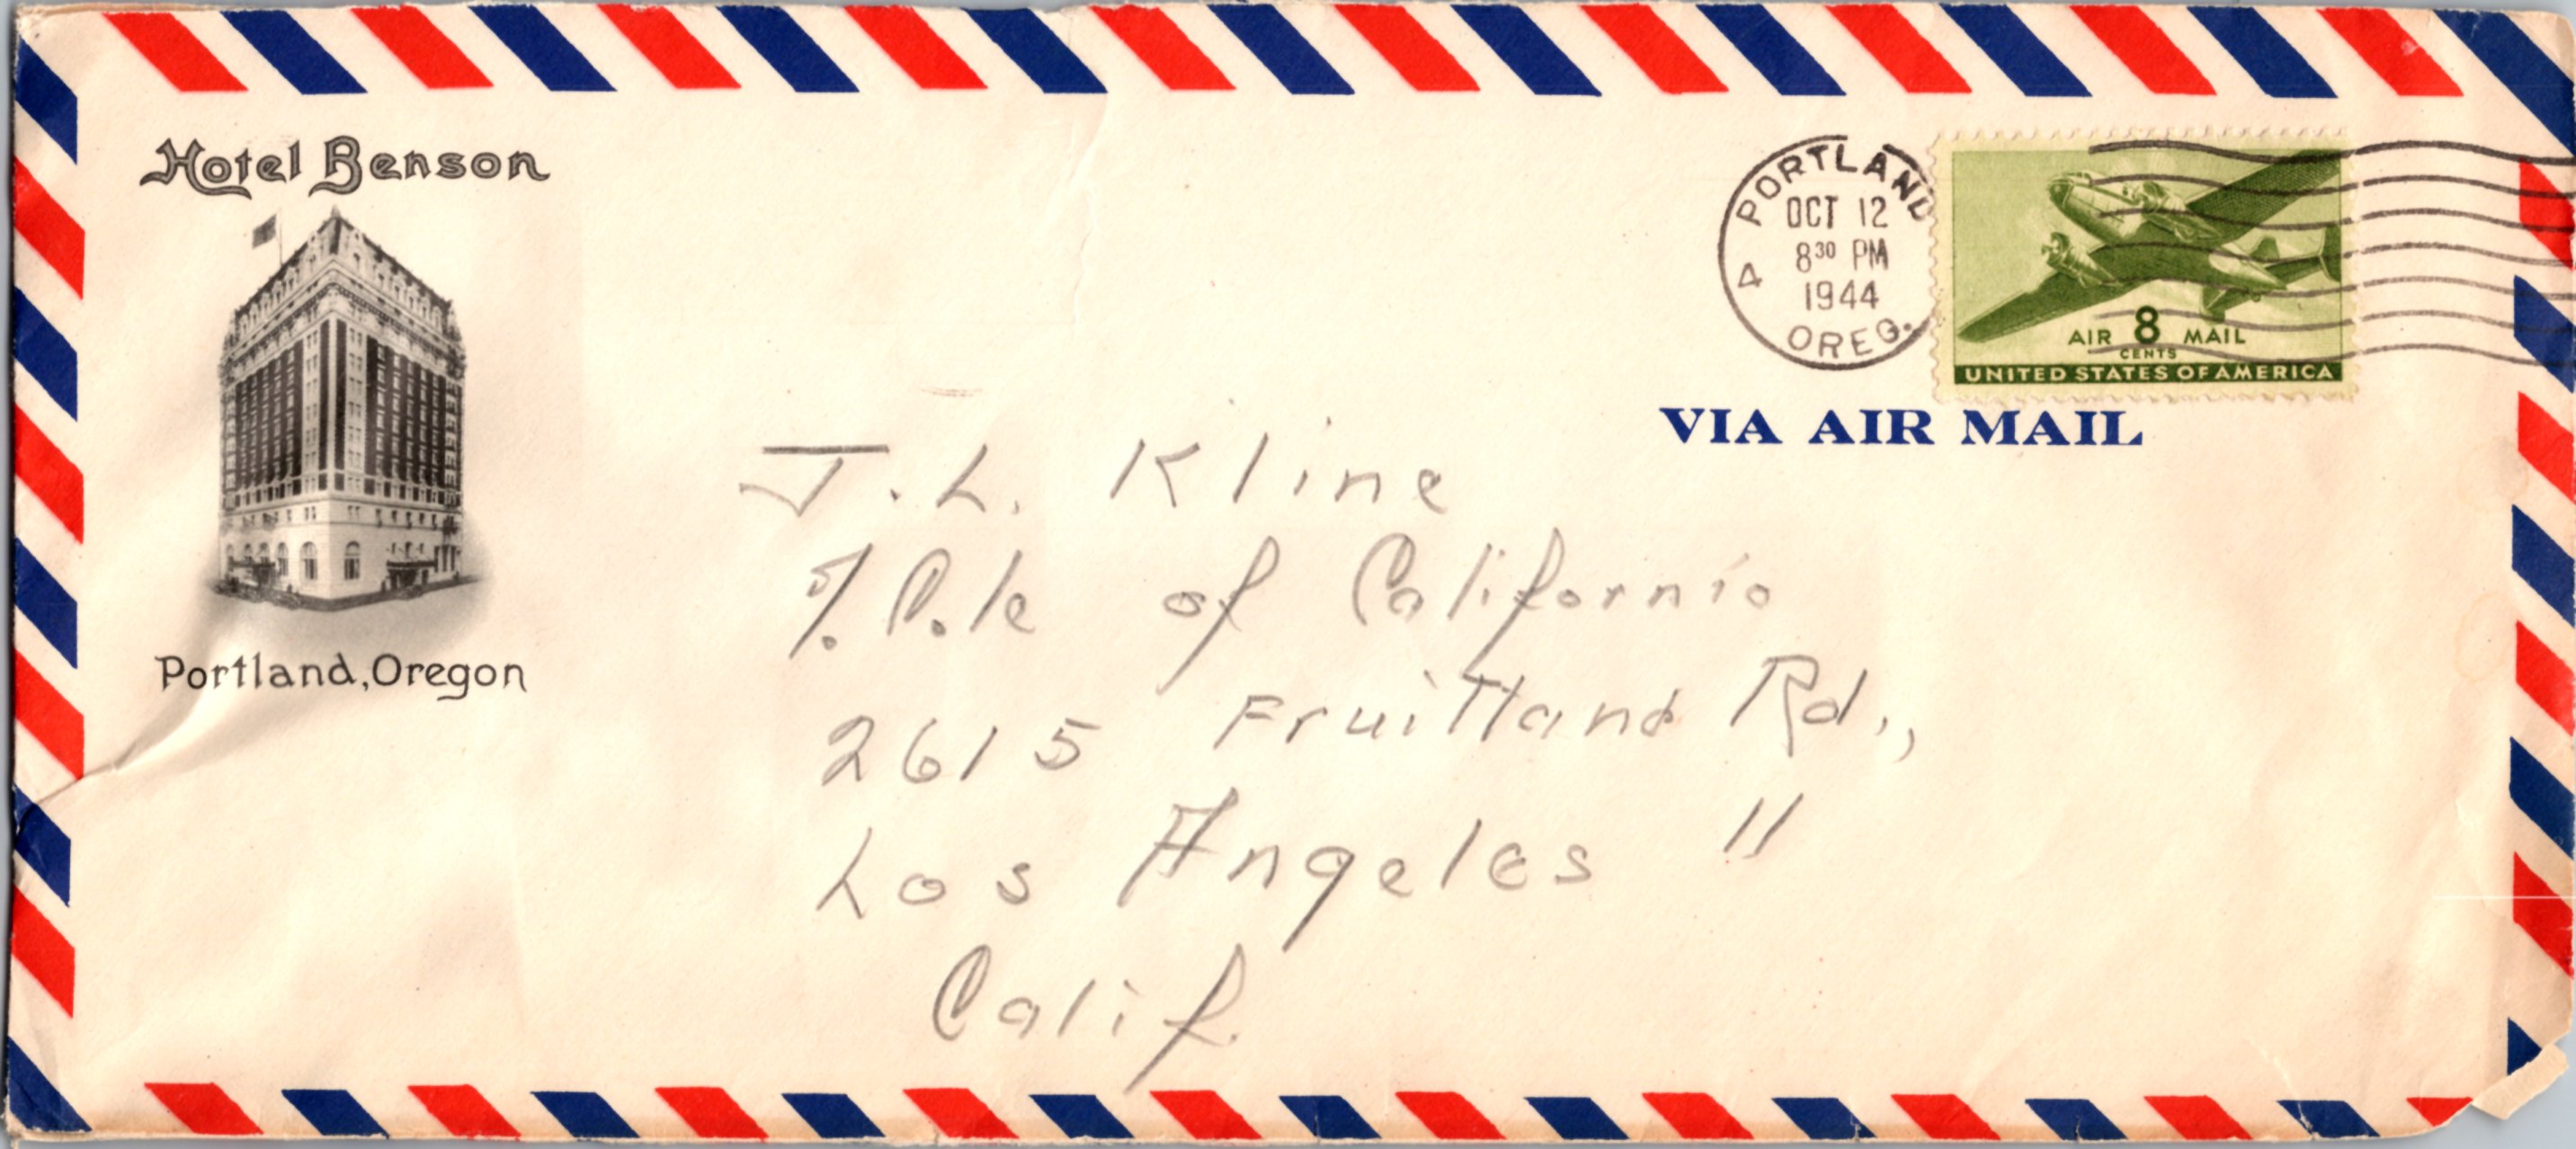 Hotel Benson
Portland, Oregon
PORTLAND
OCT 12
8 30 PM
1944
OREG.
4
AIR 8 MAIL
CENTS
UNITED STATES OF AMERICA
VIA AIR MAIL
J. L. Kline
% Cole of California
2615 Fruitland Rd.,
Los Angeles 11
Calif.